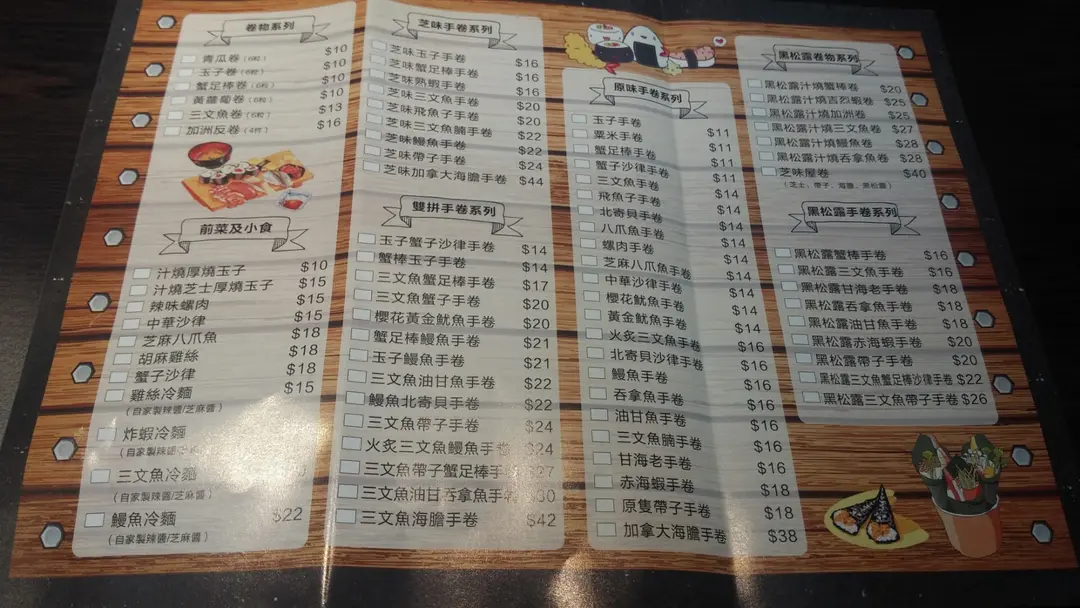 卷物系列
青瓜卷（6粒） $10
玉子卷（6粒） $10
蟹足棒卷（6粒） $10
黃蘿蔔卷（6粒） $10
三文魚卷（6粒） $13
加洲反卷（4件） $16
前菜及小食
汁燒厚燒玉子 $10
汁燒芝士厚燒玉子 $15
辣味螺肉 $15
中華沙律 $15
芝麻八爪魚 $18
胡麻雞絲 $18
蟹子沙律 $18
雞絲冷麵 $15
（自家製辣醬/芝麻醬）
炸蝦冷麵
（自家製辣醬
三文魚冷麵
（自家製辣醬/芝麻醬）
鰻魚冷麵 $22
（自家製辣醬/芝麻醬）
芝味手卷系列
芝味玉子手卷 $16
芝味蟹足棒手卷 $16
芝味熟蝦手卷 $16
芝味三文魚手卷 $20
芝味飛魚子手卷 $20
芝味三文魚腩手卷 $22
芝味鰻魚手卷 $22
芝味帶子手卷 $24
芝味加拿大海膽手卷 $44
雙拼手卷系列
玉子蟹子沙律手卷 $14
蟹棒玉子手卷 $14
三文魚蟹足棒手卷 $17
三文魚蟹子手卷 $20
櫻花黃金魷魚手卷 $20
蟹足棒鰻魚手卷 $21
玉子鰻魚手卷 $21
三文魚油甘魚手卷 $22
鰻魚北寄貝手卷 $22
三文魚帶子手卷 $24
火炙三文魚鰻魚手卷 $24
三文魚帶子蟹足棒手 $27
三文魚油甘吞拿魚手卷 $30
三文魚海膽手卷 $42
原味手卷系列
玉子手卷 $11
粟米手卷 $11
蟹足棒手卷 $11
蟹子沙律手卷 $11
三文魚手卷 $14
飛魚子手卷 $14
北寄貝手卷 $14
八爪魚手卷 $14
螺肉手卷 $14
芝麻八爪魚手卷 $14
中華沙律手卷 $14
櫻花魷魚手卷 $14
黃金魷魚手卷 $14
火炙三文魚手卷 $16
北寄貝沙律手卷 $16
鰻魚手卷 $16
吞拿魚手卷 $16
油甘魚手卷 $16
三文魚腩手卷 $16
甘海老手卷 $16
赤海蝦手卷 $18
原隻帶子手卷 $18
加拿大海膽手卷 $38
黑松露卷物系列
黑松露汁燒蟹棒卷 $20
黑松露汁燒吉烈蝦卷 $25
黑松露汁燒加洲卷 $25
黑松露汁燒三文魚卷 $27
黑松露汁燒鰻魚卷 $28
黑松露汁燒吞拿魚卷 $28
芝味屋卷 $40
（芝士、帶子、海膽、黑松露）
黑松露手卷系列
黑松露蟹棒手卷 $16
黑松露三文魚手卷 $16
黑松露甘海老手卷 $18
黑松露吞拿魚手卷 $18
黑松露油甘魚手卷 $18
黑松露赤海蝦手卷 $20
黑松露帶子手卷 $20
黑松露三文魚蟹足棒沙律手卷 $22
黑松露三文魚帶子手卷 $26